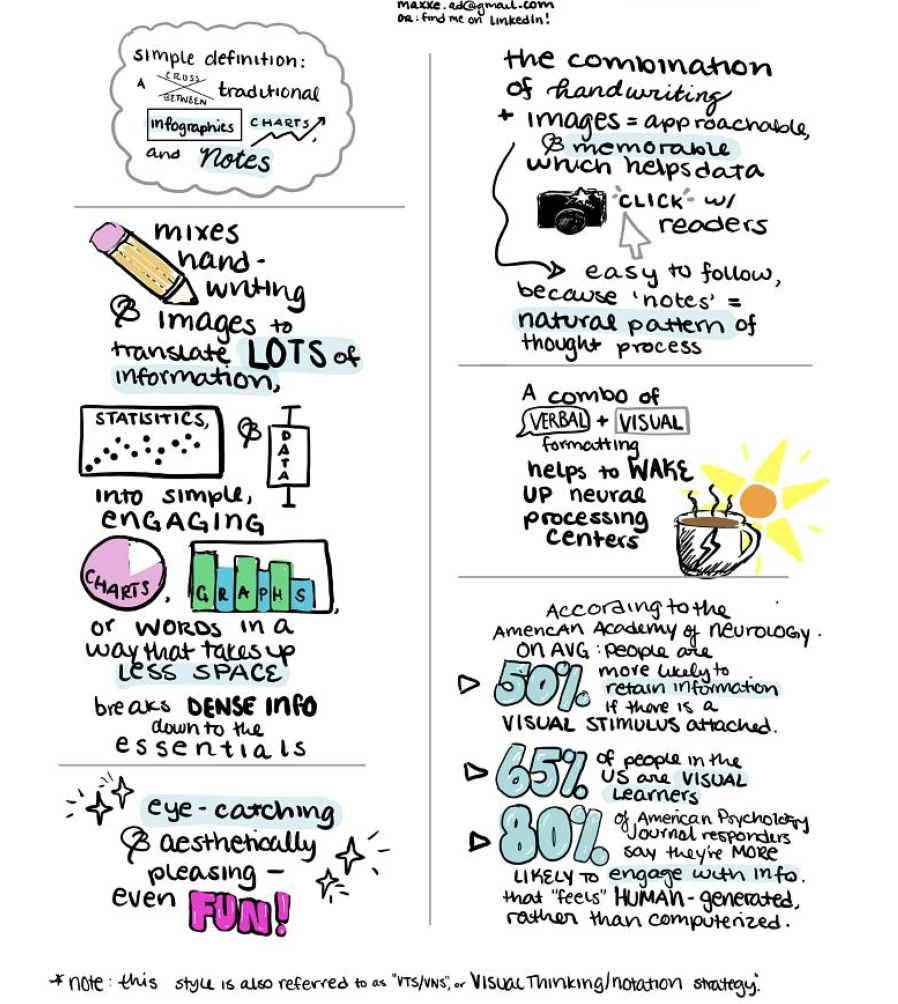 maxxe.ad@gmail.com
OR: find me on LinkedIn!
simple definition:
A CROSS BETWEEN traditional
infographics CHARTS
and Notes
mixes
hand-
writing
& images to
translate LOTS of
information,
STATISITICS, & DATA
into simple,
ENGAGING
CHARTS, GRAPHS,
or WORDS IN a
way that takes up
LESS SPACE
breaks DENSE INFO
down to the
essentials
eye-catching
& aesthetically
pleasing -
even FUN!
the combination
of handwriting
+ images = approachable,
& memorable
which helps data
"CLICK" w/
readers
easy to follow,
because 'notes' =
natural pattern of
thought process
A combo of
VERBAL + VISUAL
formatting
helps to WAKE
UP neural
processing
Centers
According to the
American Academy of neurology.
ON AVG: people are
50% more likely to
retain information
if there is a
VISUAL STIMULUS attached.
65% of people in the
US are VISUAL
Learners
80% of American Psychology
Journal responders
say they're MORE
LIKELY to engage with info.
that "feels" HUMAN-generated,
rather than computerized.
* note: this style is also referred to as "VTS/VNS", or Visual Thinking/notation strategy."